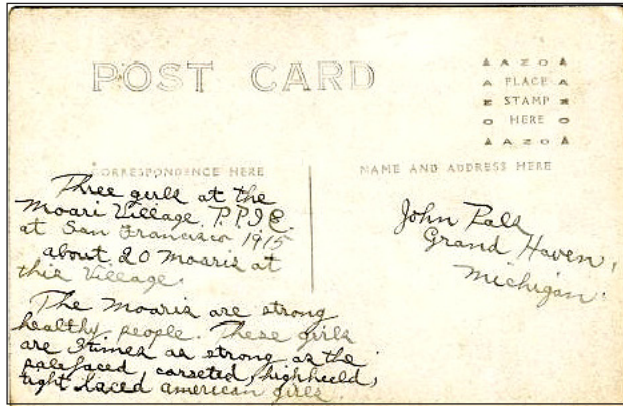 POST CARD
AZO
PLACE
STAMP
HERE
AZO
CORRESPONDENCE HERE
NAME AND ADDRESS HERE
Three girls at the
Moari Village P.P.I.E.
at San Francisco 1915
about 20 Moaris at
this Village.
The Moaris are strong
healthy people. These girls
are 3 times as strong as the
palefaced, corseted, highheeld,
tight laced american girls.
John
Grand Haven,
Michigan.